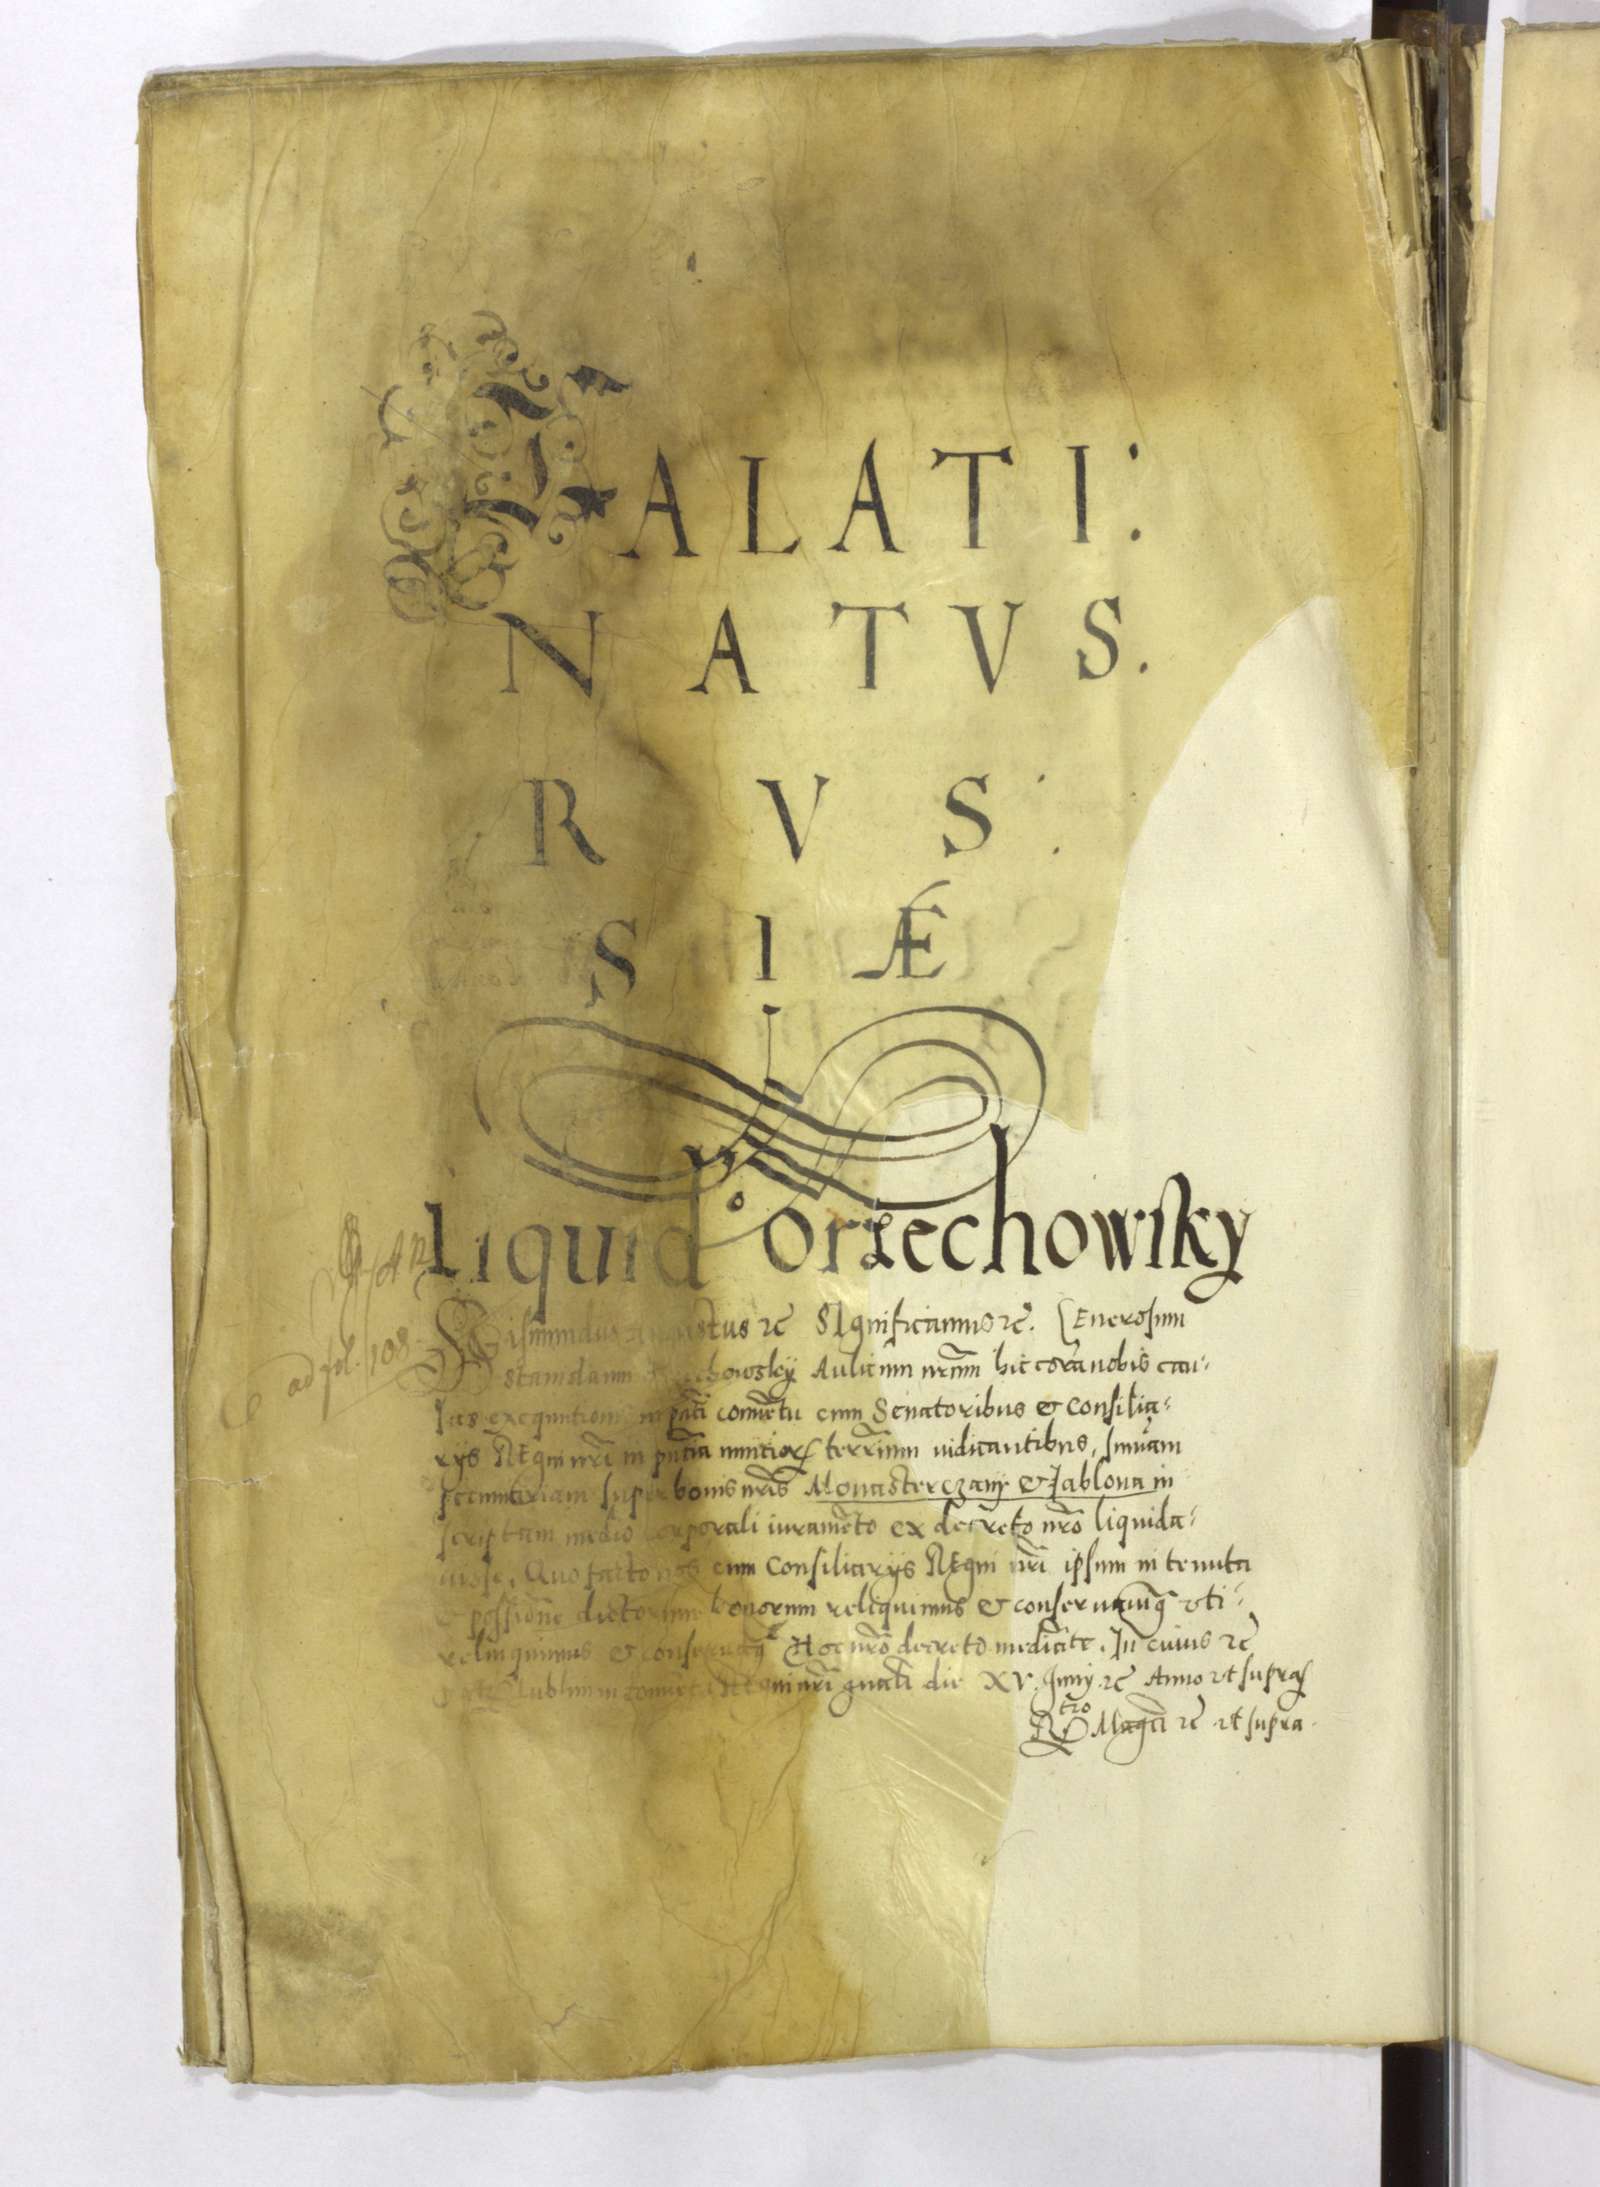 PALATI:
NATVS.
RVS:
SIÆ
liquid orzechowsky
ad fol. 108
Sigismundus Augustus rc SIgnificamus rc. GEnerosum
Stanislaum Orzechowsky Aulicum nrum hic corā nobis cau-
sas exequutionis in pnti conuētu cum Senatoribus & Consilia-
rys REgni nri in pntia nuncior terrarum iudicantibus, summam
pecuniariam super bonis nris Monasterczany & Jablona in
scriptam medio corporali iuramēto ex decreto nro liquida-
uisse, Quo facto nos cum Consiliarys REgni nri ipsum in tenuta
& possione dictorum bonorum reliquimus & conseruauimq vti-
relinquimus & conseruamq Hoc nro decreto mediāte. In cuius rc
Dat Lublini in conuētu REgni nri gnali die XV Juny rc Anno vt supra
Rtio Magci rc vt supra.